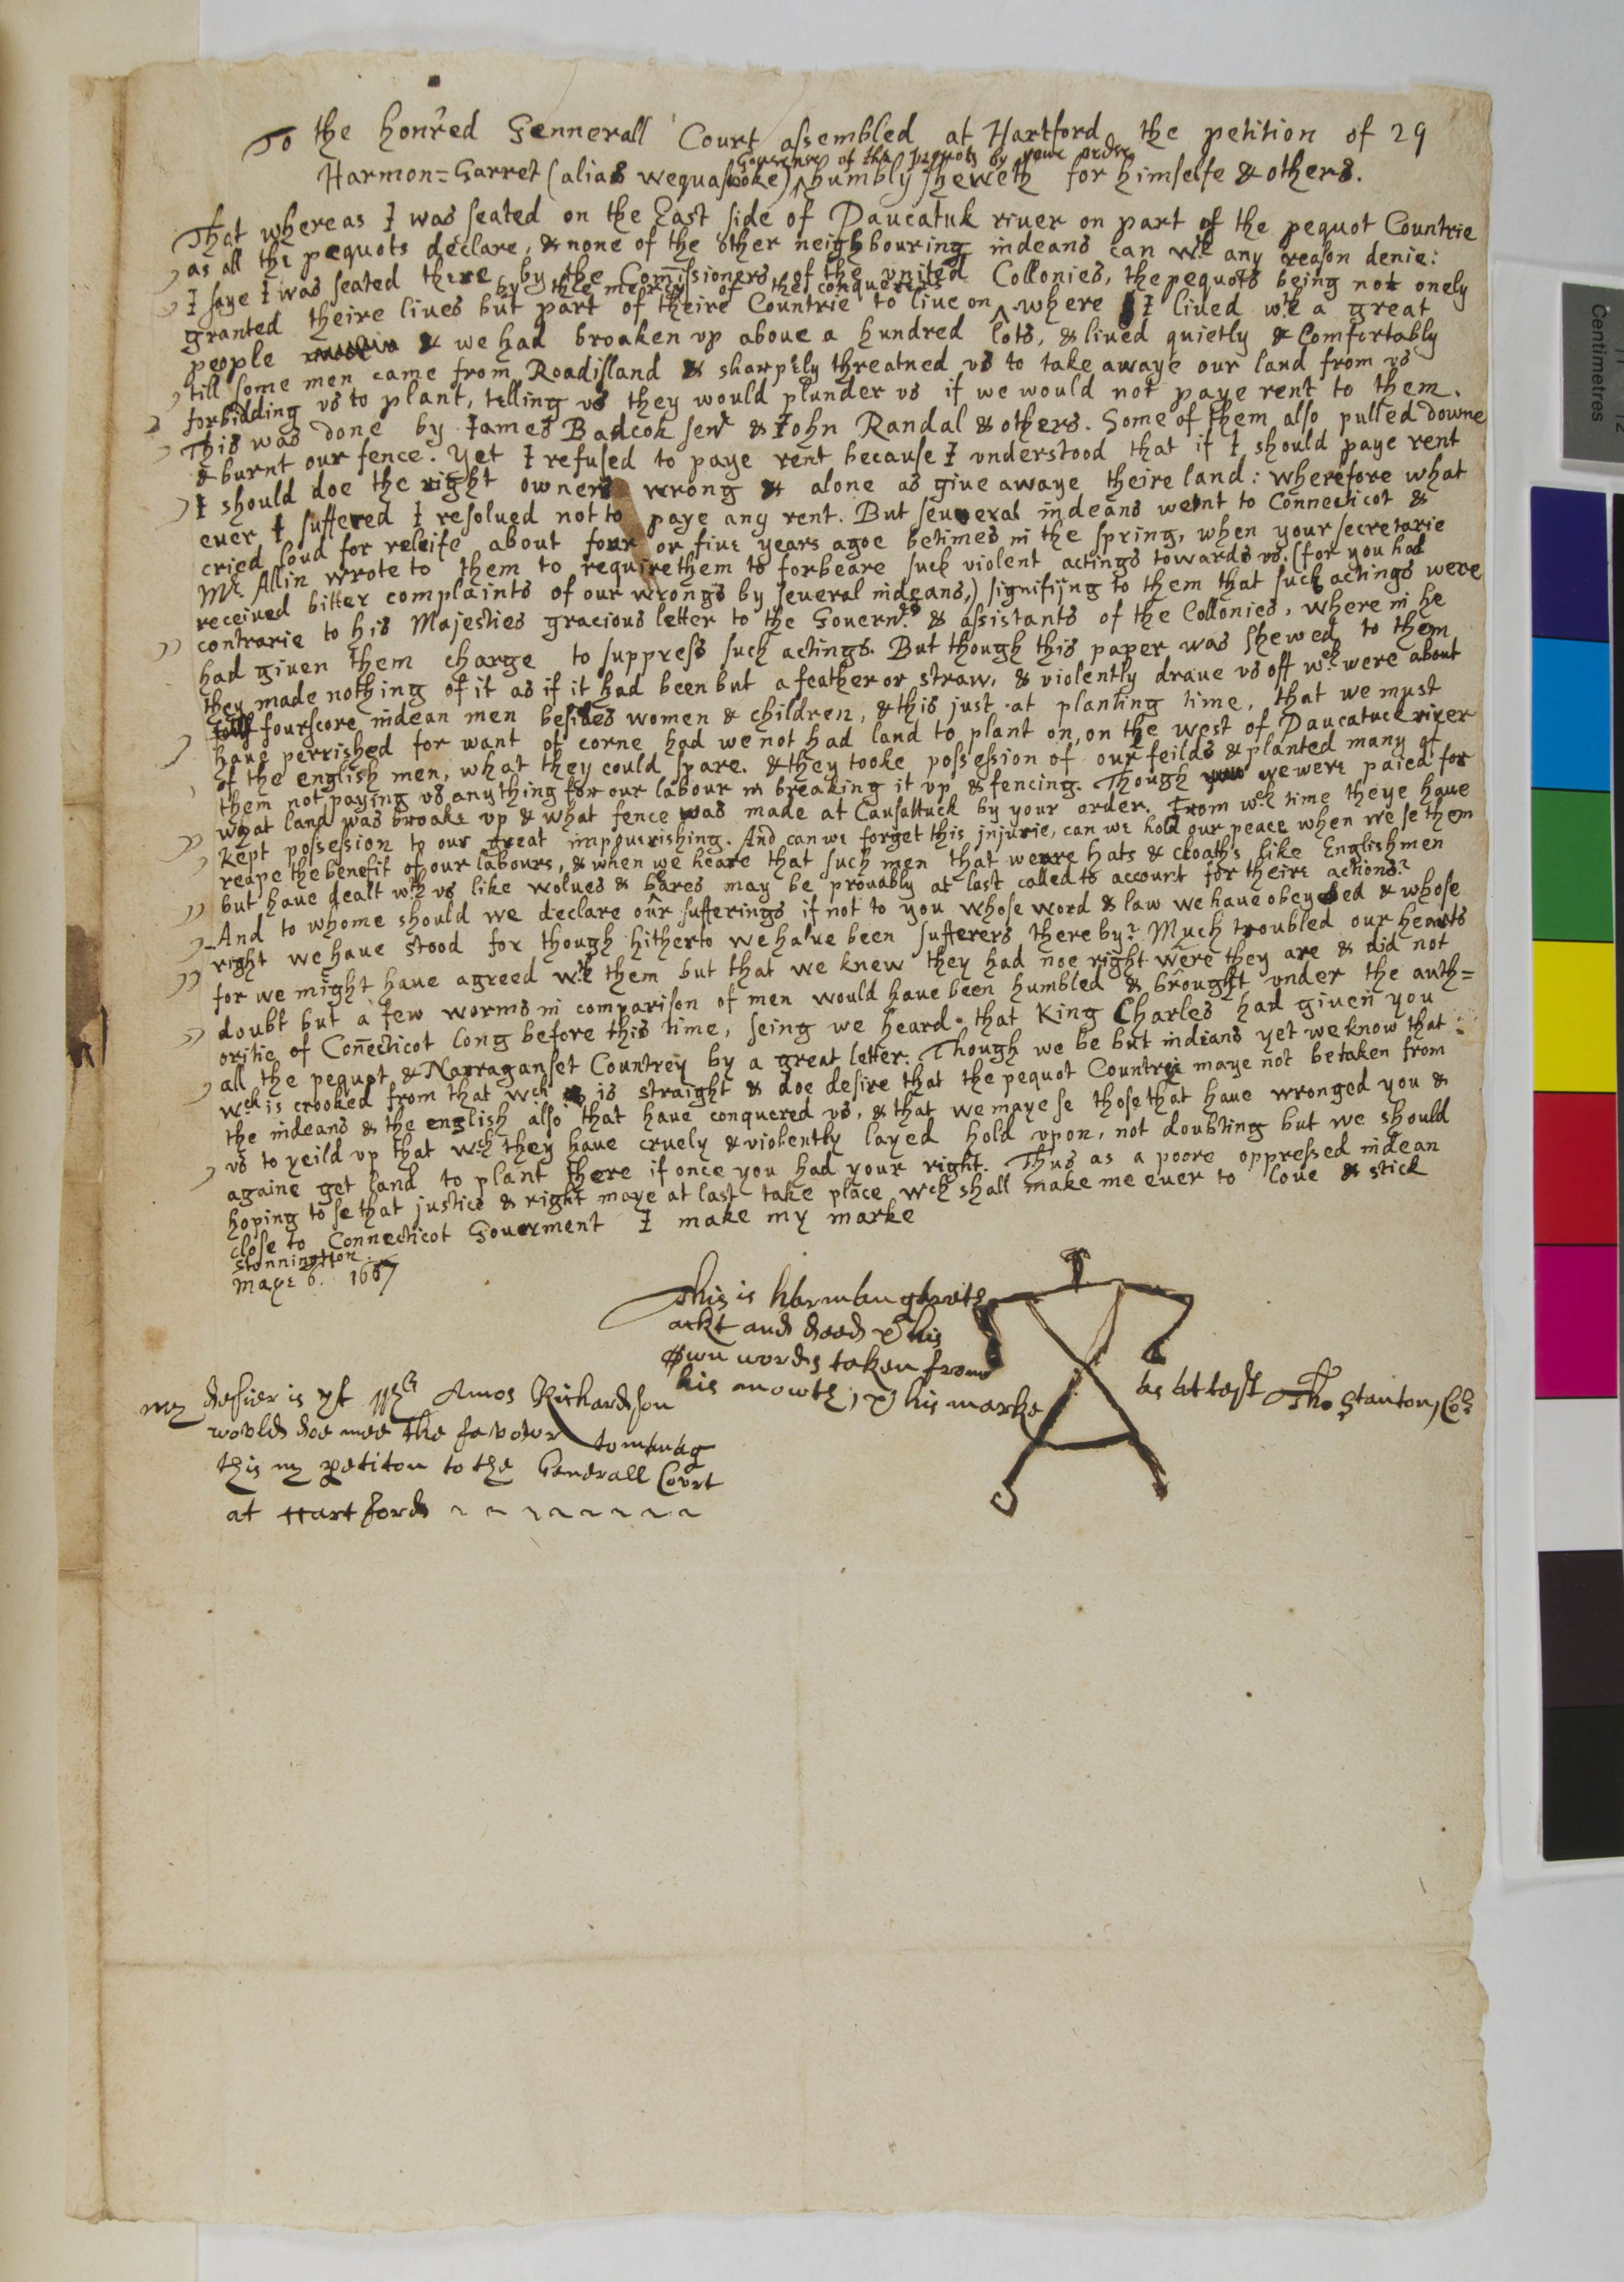 To the honred Gennerall Court assembled at Hartford the petition of 29
Gouernor of the pequots by your order
Harmon=Garret (alias wequashooke) ^ humbly sheweth for himselfe & others.
That whereas I was seated on the East side of Paucatuk riuer on part of the pequot Countrie
as all the pequots declare, & none of the other neighbouring indeans can wth any reason denie:
I saye I was seated there by the Comissioners of the vnited Collonies, the pequots being not onely
by the mercy of the conquerers
granted theire liues but part of theire Countrie to liue on ^ where I liued wth a great
people & we had broaken vp aboue a hundred lots, & liued quietly & Comfortably
till some men came from Roadisland & sharpely threatned vs to take awaye our land from vs
forbidding vs to plant, telling vs they would plunder vs if we would not paye rent to them.
This was done by James Badcok senr & John Randal & others. Some of them also pulled downe
& burnt our fence. Yet I refused to paye rent because I vnderstood that if I should paye rent
I should doe the right owners wrong & alone as giue awaye theire land: wherefore what
euer I suffered I resolued not to paye any rent. But seueral indeans went to Connecticot &
cried loud for releife about four or fiue years agoe betimes in the spring, when your secretarie
Mr Allin wrote to them to require them to forbeare such violent actings towards vs. (for you had
receiued bitter complaints of our wrongs by seueral indeans,) signifijng to them that such actings were
contrarie to his Majesties gracious letter to the Gouernrs & assistants of the Collonies, where in he
had giuen them charge to suppress such actings. But though this paper was shewed to them
they made nothing of it as if it had been but a feather or straw, & violently draue vs off wch were about
fourscore indean men besides women & children, & this just at planting time, that we must
haue perrished for want of corne had we not had land to plant on, on the west of Paucatuck riuer
of the english men, what they could spare. & they tooke possession of our feilds & planted many of
them not paying vs anything for our labour in breaking it vp & fencing. Though we were paied for
what land was broake vp & what fence was made at Causattuck by your order. From wch time theye haue
kept possession to our great impouerishing. And can we forget this injurie, can we hold our peace when we se them
reape the benefit of our labours, & when we heare that such men that weare hats & cloaths like Englishmen
but haue dealt wth vs like wolues & bares may be prouably at last called to account for theire actions?
And to whome should we declare our sufferings if not to you whose word & law we haue obeyed & whose
right we haue stood for though hitherto we haue been sufferers thereby? Much troubled our hearts
for we might haue agreed wth them but that we knew they had noe right were they are & did not
doubt but a few worms in comparison of men would haue been humbled & brought vnder the auth=
oritie of Conecticot long before this time, seing we heard that King Charles had giuen you
all the pequot & Narraganset Countrey by a great letter. Though we be but indians yet we know that
wch is crooked from that wch is straight & doe desire that the pequot Countrie maye not be taken from
the indeans & the english also that haue conquered vs, & that we maye se those that haue wronged you &
vs to yeild vp that wch they haue cruely & violently layed hold vpon, not doubting but we should
againe get land to plant there if once you had your right. Thus as a poore oppressed indean
hoping to se that justice & right maye at last take place wch shall make me euer to loue & stick
close to Connecticot Gouerment I make my marke
Stonnington
Maye 6. 1667
This is harman garrets
ackt and deed & his
own words taken from
his mowth, & his marke
as attest Tho Stanton, Cor
my desier is yt Mr Amos Richardson
would doe mee the favour to manag
this my petiton to the Generall Court
at Hartford
Centimetres